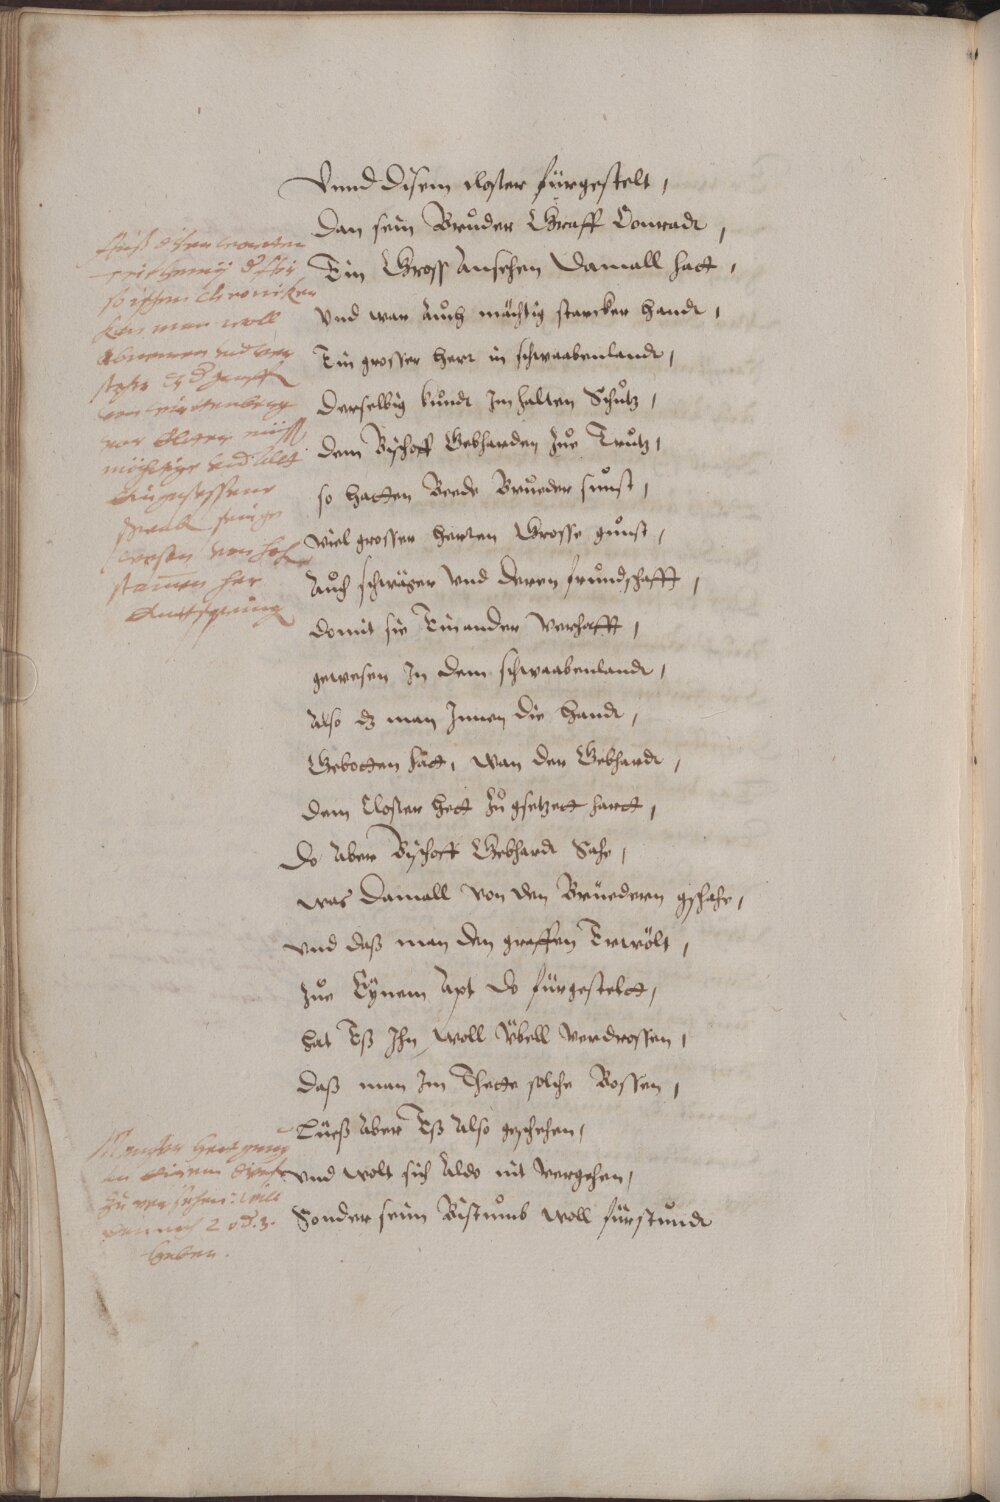 Vnnd disem closter fürgestelt,
Dan sein Brůder Graff Conradt,
Ein Gross Ansehen Damall hatt,
Vnd war Aůch mächtig starcker handt,
Ein grosser herr in schwaabenlandt,
Derselbig kůndt Im halten Schůtz,
Dem Bischoff Gebharden Zůe Trůtz,
so hatten Beede Brůeder sůnst,
viel grosser herren Grosse gůnst,
Aůch schwäger Vnd deren freůndschafft,
domit sie Einander Verhafft,
gewesen In dem schwaabenlandt,
Also dz man Innen die handt,
Gebotten hätt, wan der Gebhardt,
dem Closter hett Zů gsetzett hartt,
Do Aber Bischoff Gebhardt Sahe,
was Damall von den Brüedern gschahe,
vnd daß man den graffen Erwölt,
Zůe Eynem Apt do fürgesteltt,
hat Eß Ihn woll Vbell Verdrossen,
daß man Im Thette solche Bossen,
Lüeß Aber Eß Also geschehen,
vnd wolt sich Aldo nit Vergehen,
Sonder seim Bistůmb woll fürstůndt
so ihren Chroniken
kan man woll
Abnemen vnd ver
von wirtenberg
stammen her
zu versehen: will
2 od. 3.
haben.